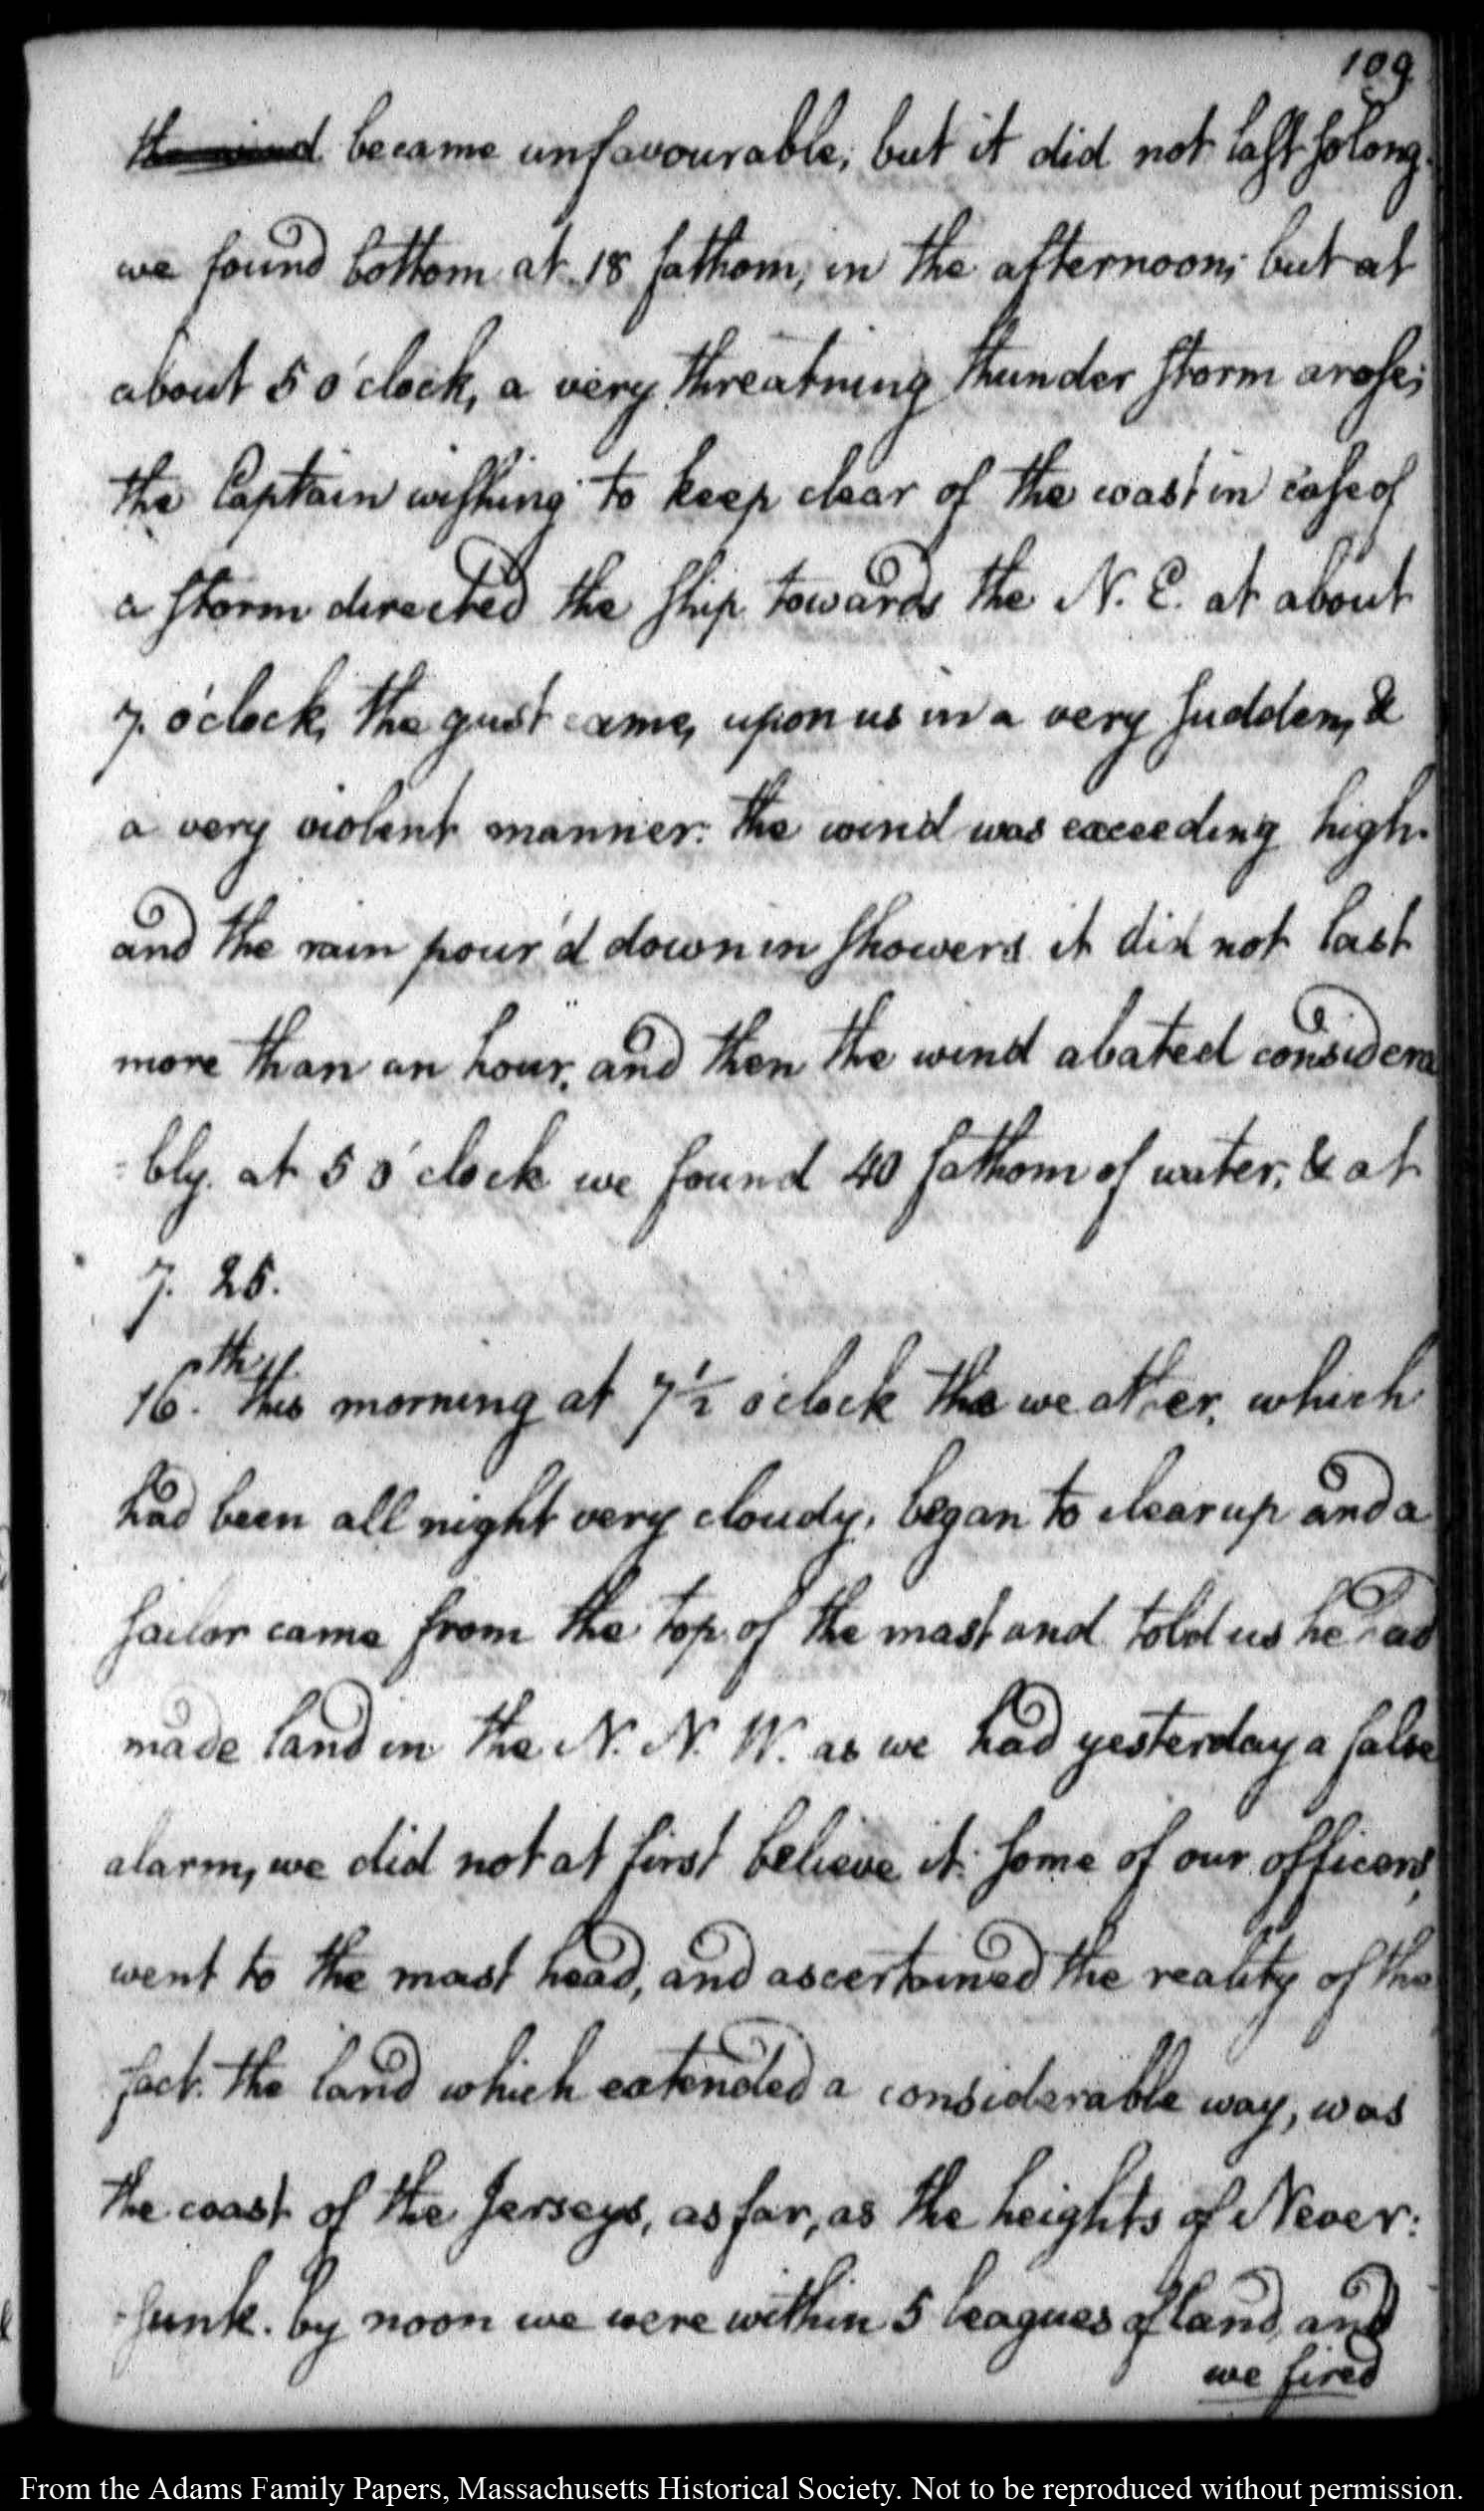 109
the wind became unfavourable; but it did not last so long.
we found bottom at 18 fathom, in the afternoon; but at
about 5 o'clock, a very threatning thunder storm arose;
the Captain wishing to keep clear of the coast in case of
a storm directed the ship towards the N. E. at about
7. o'clock, the gust came, upon us in a very sudden, &
a very violent manner: the wind was exceeding high.
and the rain pour'd down in showers it did not last
more than an hour, and then the wind abated considera
-bly. at 5 o'clock we found 40 fathom of water, & at
7. 25.
16.th this morning at 7 1/2 o'clock the weather, which
had been all night very cloudy, began to clear up and a
sailor came from the top of the mast and told us he had
made land in the N. N. W. as we had yesterday a false
alarm, we did not at first believe it: some of our officers,
went to the mast head, and ascertained the reality of the
fact. the land which extended a considerable way, was
the coast of the Jerseys, as far, as the heights of Never:
-sunk. by noon we were within 5 leagues of land, and
we fired
From the Adams Family Papers, Massachusetts Historical Society. Not to be reproduced without permission.